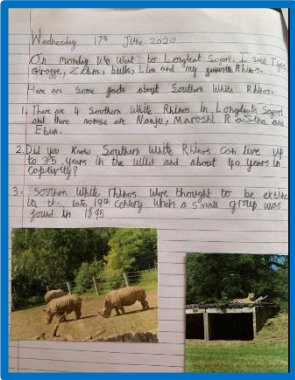 Wednesday 17th June 2020
On monday We Went to Longleat Safari. I saw Tiger
Zebra, bulls, Lion and my favourite Rhinos.
Here are some facts about Southern White Rhinos.
1. There are 4 Southern White Rhinos in Longleat Safari
and there names are
2. Did you Know Southern White Rhinos can live up
to 35 years in the Wild and about 40 years in
captivity?
3. Southern White rhinos Were thought to be extinct
in the late 19th Century when a small group was
found in 1895